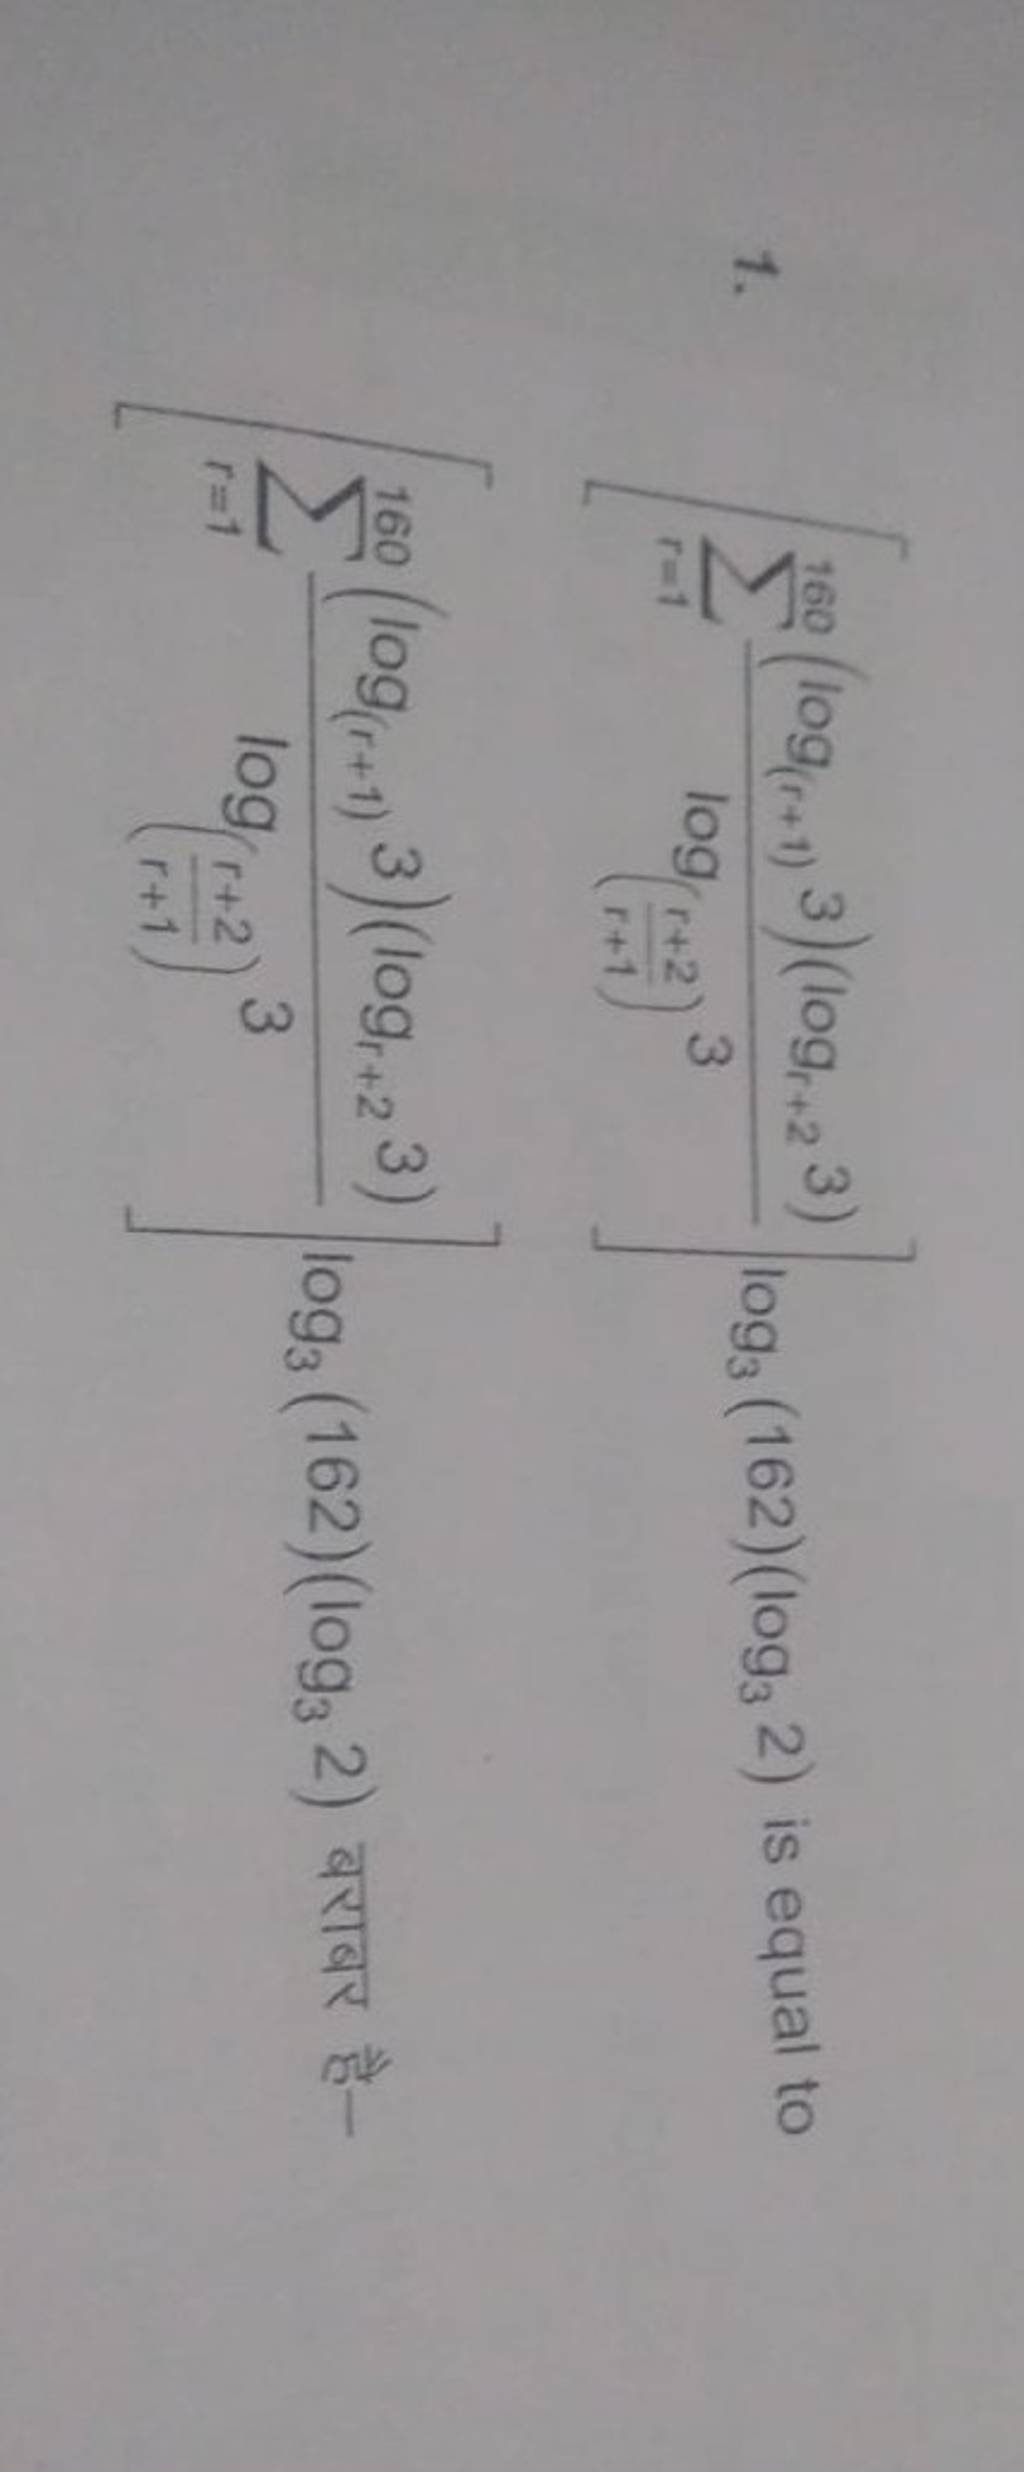 1. $\left[\sum_{r=1}^{160} \frac{\left(\log_{(r+1)} 3\right)\left(\log_{r+2} 3\right)}{\log_{\left(\frac{r+2}{r+1}\right)} 3}\right] \log_3 (162)(\log_3 2)$ is equal to
$\left[\sum_{r=1}^{160} \frac{\left(\log_{(r+1)} 3\right)\left(\log_{r+2} 3\right)}{\log_{\left(\frac{r+2}{r+1}\right)} 3}\right] \log_3 (162)(\log_3 2)$ बराबर है–